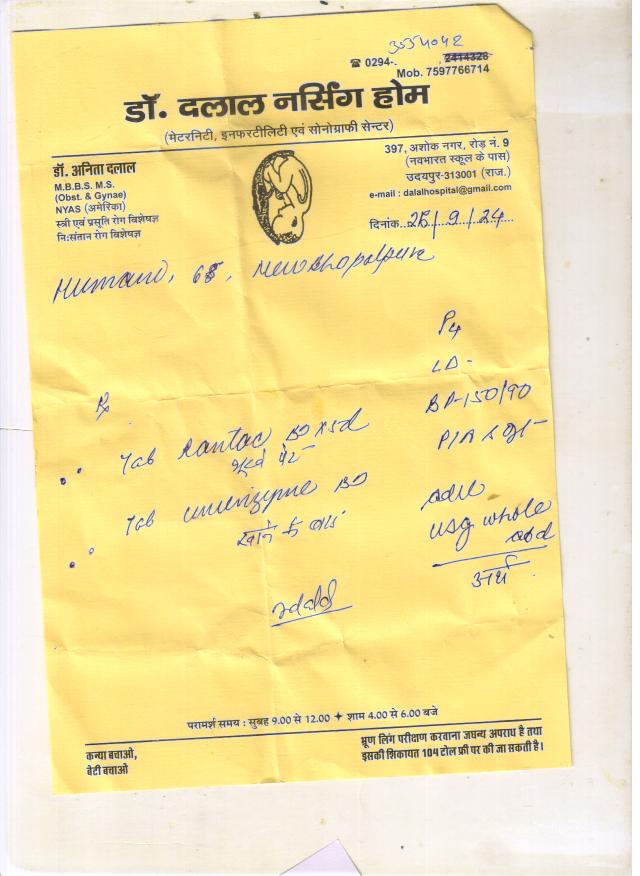 3554042
☎ 0294-. 2414328
Mob. 7597766714
डॉ. दलाल नर्सिंग होम
(मेटरनिटी, इनफरटीलिटी एवं सोनोग्राफी सेन्टर)
डॉ. अनिता दलाल
M.B.B.S. M.S.
(Obst. & Gynae)
NYAS (अमेरिका)
स्त्री एवं प्रसूति रोग विशेषज्ञ
नि:संतान रोग विशेषज्ञ
397, अशोक नगर, रोड़ नं. 9
(नवभारत स्कूल के पास)
उदयपुर-313001 (राज.)
e-mail : dalalhospital@gmail.com
दिनांक 28/9/24
New Bhopalpura
LD -
BP-150/90
Rx
Tab Rantac BD x 5d
भूखे पेट
P/A
Tab unienzyme BD
खाने के बाद
adv
usg whole
abd
परामर्श समय : सुबह 9.00 से 12.00 ✦ शाम 4.00 से 6.00 बजे
कन्या बचाओ,
बेटी बचाओ
भ्रूण लिंग परीक्षण करवाना जघन्य अपराध है तथा
इसकी शिकायत 104 टोल फ्री पर की जा सकती है।